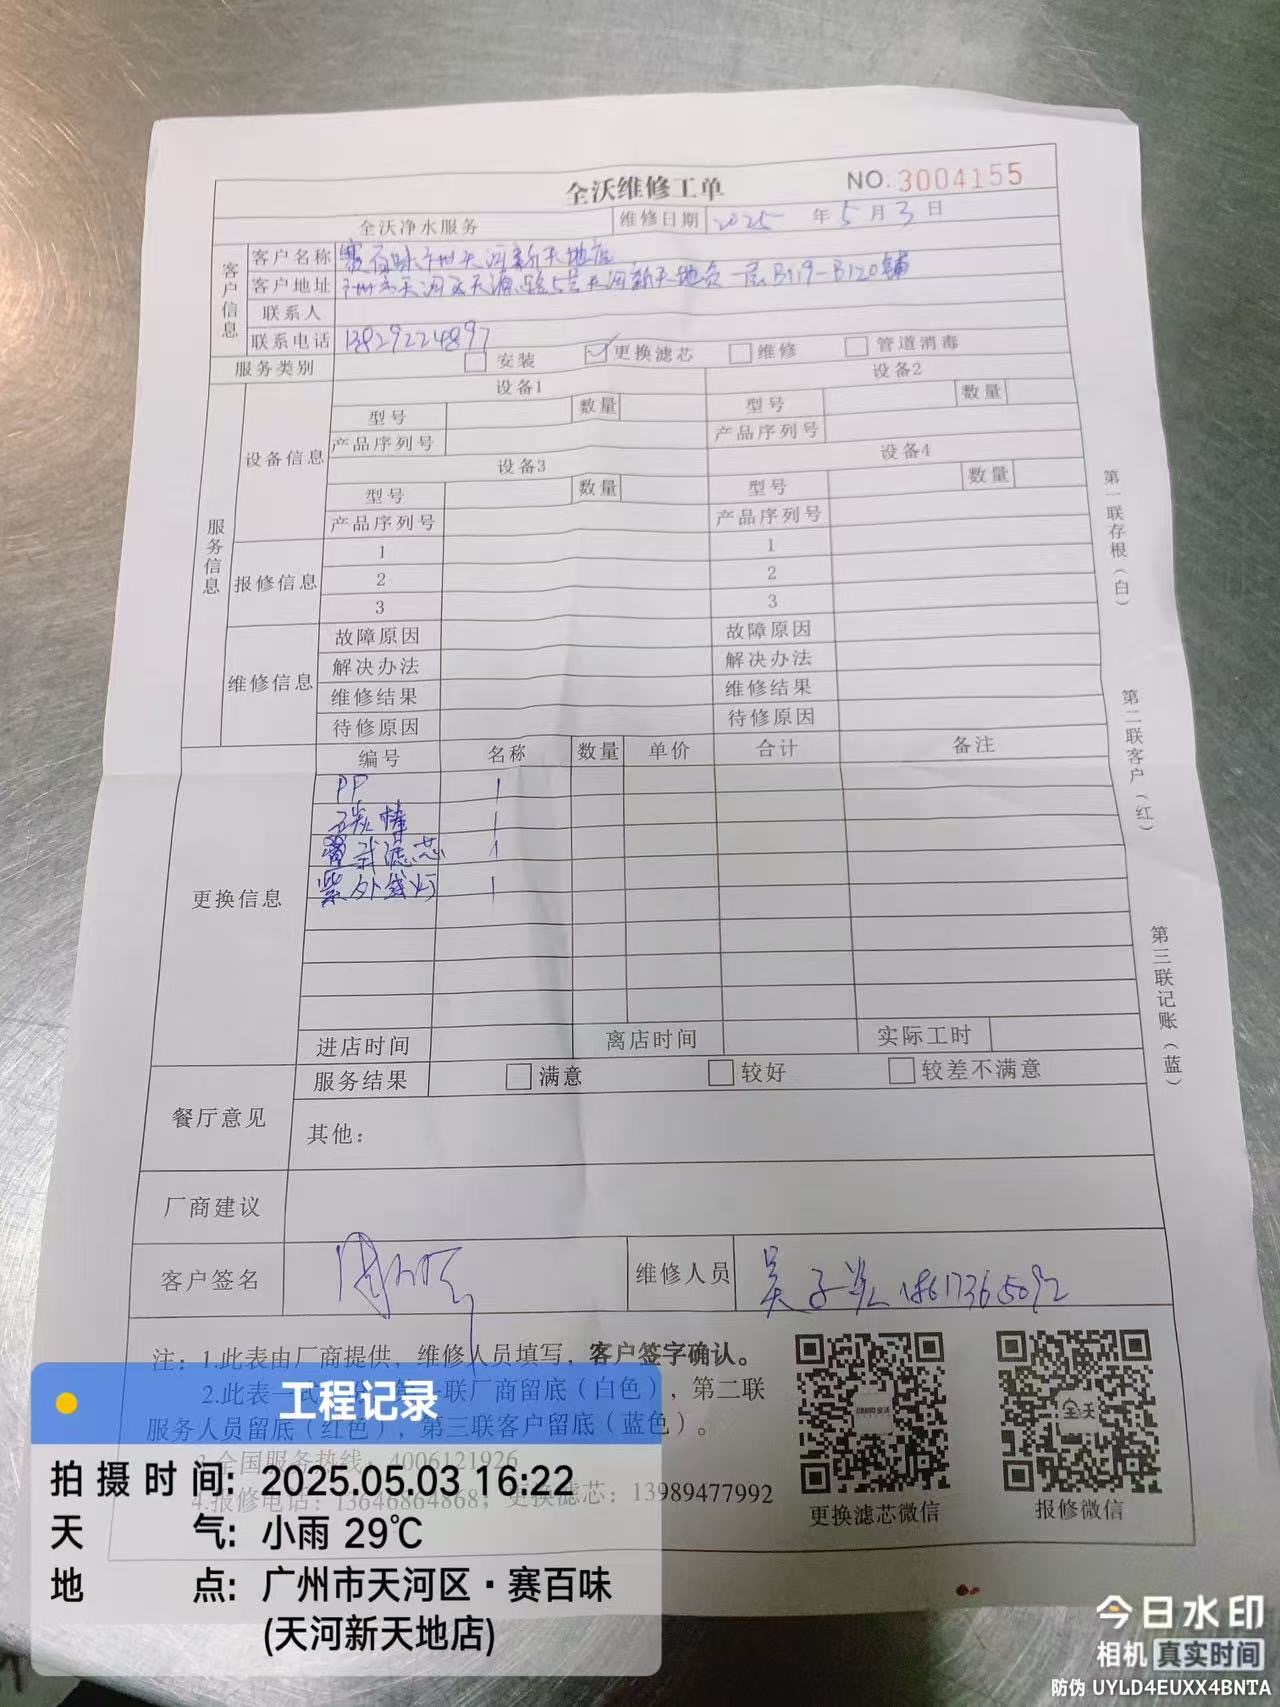 全沃维修工单
NO. 3004155
全沃净水服务 维修日期 2025 年 5 月 3 日
客户信息
客户名称 赛百味广州天河新天地店
客户地址 广州市天河区天源路5号天河新天地负一层B119-B120铺
联系人
联系电话 13829224897
服务类别 安装 更换滤芯 维修 管道消毒
服务信息
设备信息
设备1 设备2
型号 数量 型号 数量
产品序列号 产品序列号
设备3 设备4
型号 数量 型号 数量
产品序列号 产品序列号
报修信息
1 1
2 2
3 3
维修信息
故障原因 故障原因
解决办法 解决办法
维修结果 维修结果
待修原因 待修原因
更换信息
编号 名称 数量 单价 合计 备注
PP 1
碳棒 1
滤芯 1
紫外线灯 1
进店时间 离店时间 实际工时
餐厅意见
服务结果 满意 较好 较差不满意
其他:
厂商建议
客户签名 维修人员 吴子 18617365092
注: 1.此表由厂商提供, 维修人员填写, 客户签字确认。
2.此表一式 联厂商留底(白色), 第二联
服务人员留底(红色), 第三联客户留底(蓝色)。
全国服务热线: 4006121926
4.报修电话: 13646864868; 更换滤芯: 13989477992
更换滤芯微信 报修微信
全沃
第一联存根(白)
第二联客户(红)
第三联记账(蓝)
工程记录
拍摄时间: 2025.05.03 16:22
天气: 小雨 29℃
地点: 广州市天河区·赛百味
(天河新天地店)
今日水印
相机 真实时间
防伪 UYLD4EUXX4BNTA